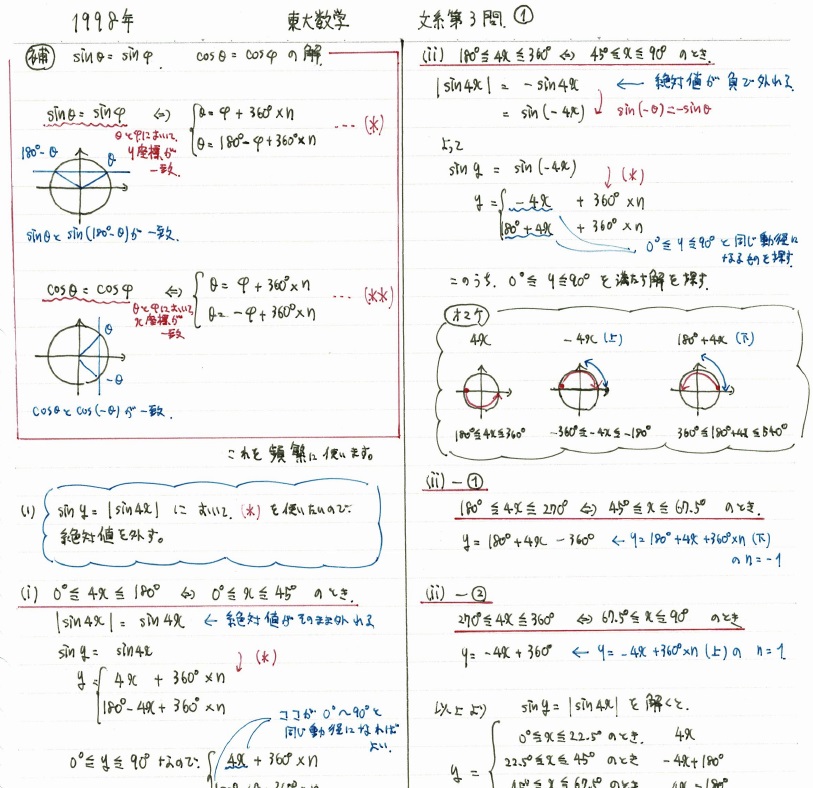 1998年 東大数学 文系第3問. ①
補 sinθ = sinφ. cosθ = cosφ の解.
sinθ = sinφ ⇔ { θ = φ + 360°×n
θ = 180°-φ + 360°×n … (*)
θとφにおいて、
y座標が
一致.
180°-θ θ
sinθと sin(180°-θ)が 一致.
cosθ = cosφ ⇔ { θ = φ + 360°×n
θ = -φ + 360°×n … (**)
θとφにおいて
x座標が
一致.
θ
-θ
cosθと cos(-θ) が 一致.
これを 頻繁に 使います。
(1) sin y = |sin4x| に おいて. (*) を 使いたいので.
絶対値を外す。
(i) 0° ≦ 4x ≦ 180° ⇔ 0° ≦ x ≦ 45° のとき.
|sin4x| = sin4x ← 絶対値がそのまま外れる
sin y = sin4x
(*)
y = { 4x + 360°×n
180°-4x + 360°×n
ココが 0°〜90°と
同じ動径になれば
よい.
0° ≦ y ≦ 90° なので. { 4x + 360°×n
(ii) 180° ≦ 4x ≦ 360° ⇔ 45° ≦ x ≦ 90° のとき.
|sin4x| = - sin4x ← 絶対値が 負で外れる
= sin(-4x) sin(-θ) = -sinθ
よって
sin y = sin(-4x)
(*)
y = { -4x + 360°×n
180°+4x + 360°×n
0° ≦ y ≦ 90° と同じ動径に
なるものを探す
このうち. 0° ≦ y ≦ 90° を 満たす 解を 探す.
オマケ
4x -4x (上) 180°+4x (下)
180° ≦ 4x ≦ 360° -360° ≦ -4x ≦ -180° 360° ≦ 180°+4x ≦ 540°
(ii) - ①
180° ≦ 4x ≦ 270° ⇔ 45° ≦ x ≦ 67.5° のとき.
y = 180° + 4x - 360° ← y = 180° + 4x + 360°×n (下)
の n = -1
(ii) - ②
270° ≦ 4x ≦ 360° ⇔ 67.5° ≦ x ≦ 90° のとき
y = -4x + 360° ← y = -4x + 360°×n (上) の n = 1
以上より sin y = |sin4x| を 解くと.
y = { 0° ≦ x ≦ 22.5° のとき. 4x
22.5° ≦ x ≦ 45° のとき -4x + 180°
45° ≦ x ≦ 67.5° のとき 4x - 180°